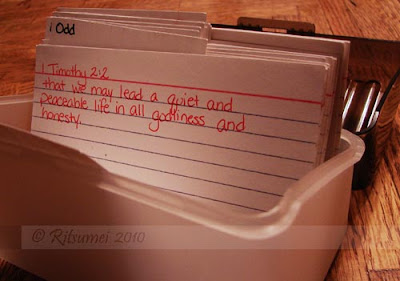 1 Odd
1 Timothy 2:2
that we may lead a quiet and
peaceable life in all godliness and
honesty.
© Ritsumei 2010